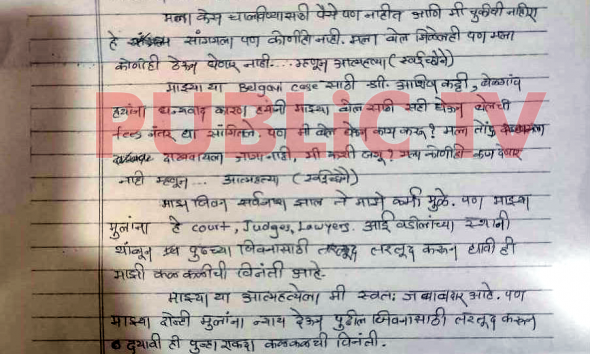 मला केस चालविण्यासाठी पैसे पण नाहीत आणि मी चुकीची नाही
हे सांगितला पण कोणीही नाही. मला बेल मिळाली पण मला
कोणीही ठेऊन घेणार नाही.... म्हणून आत्महत्या (स्वईच्छेने)
माझ्या या Belgavi case साठी श्री. आशिष कट्टी, बेळगांव
ह्यांना धन्यवाद कारण ह्यांनी माझ्या बेल साठी सही घेऊन बेलची
fees नंतर द्या सांगितले. पण मी बेल घेऊन काय करू? मला तोंड
दाखवायला जागा नाही, मी कशी जगू? मला कोणीही ठेऊन घेणार
नाही म्हणून... आत्महत्या (स्वईच्छेने)
माझं जिवन सर्वनाश झाल ते माझे कर्मा मुळे. पण माझ्या
मुलांना हे court, Judges, Lawyers. आई वडीलांच्या स्थानी
थांबून पुढच्या जिवनासाठी तरतूद करून द्यावी ही
माझी कळकळीची विनंती आहे.
माझ्या या आत्महत्येला मी स्वतः जबाबदार आहे. पण
माझ्या दोन्ही मुलांना न्याय देऊन पुढील जिवनासाठी तरतूद करून
दयावी ही पुन्हा एकदा कळकळची विनंती.
PUBLiC TV